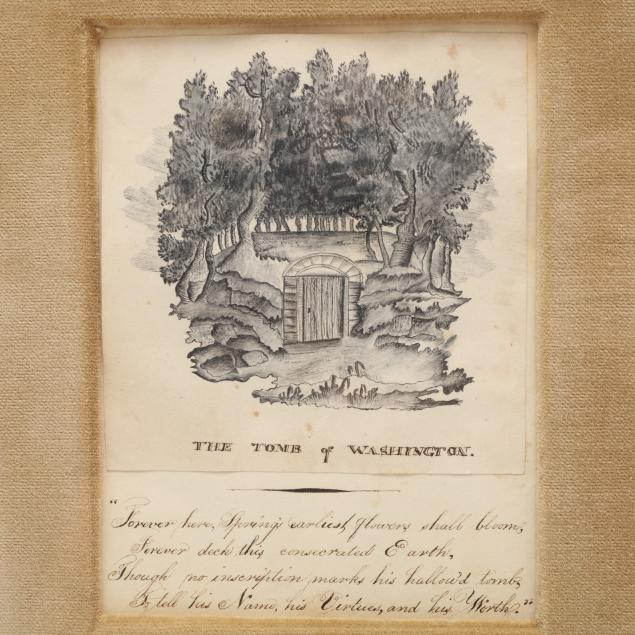 THE TOMB of WASHINGTON.
"Forever here, Spring's earliest flowers shall bloom,
Forever deck this consecrated Earth,
Though no inscription marks his hallow'd tomb,
To tell his Name, his Virtues, and his Worth."